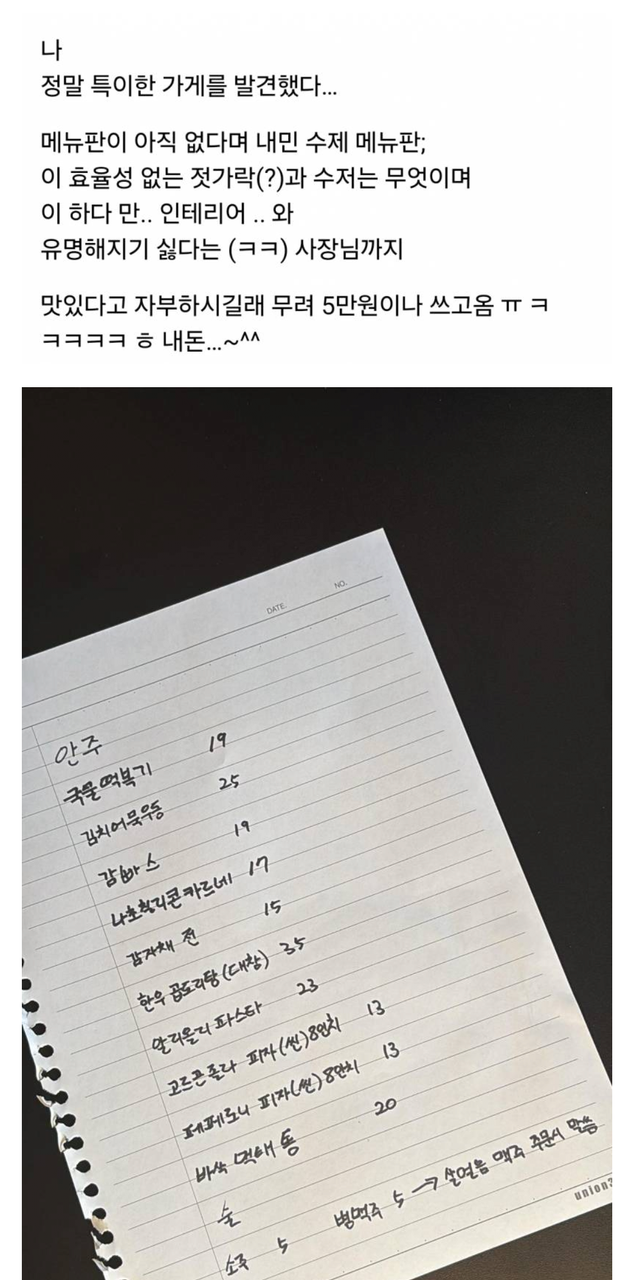 나
정말 특이한 가게를 발견했다...
메뉴판이 아직 없다며 내민 수제 메뉴판;
이 효율성 없는 젓가락(?)과 수저는 무엇이며
이 하다 만.. 인테리어 .. 와
유명해지기 싫다는 (ㅋㅋ) 사장님까지
맛있다고 자부하시길래 무려 5만원이나 쓰고옴 ㅠ ㅋ
ㅋㅋㅋㅋ ㅎ 내돈...~^^
DATE. NO.
안주
국물떡볶기 19
김치어묵우동 25
감빠스 19
나쵸칠리콘카르네 17
감자채 전 15
한우 곱도리탕(대창) 35
알리올리 파스타 23
고르곤졸라 피자(씬)8인치 13
페페로니 피자(씬)8인치 13
바싹 먹태통 20
술
소주 5 병맥주 5 → 살얼음 맥주 주문시 말씀
union